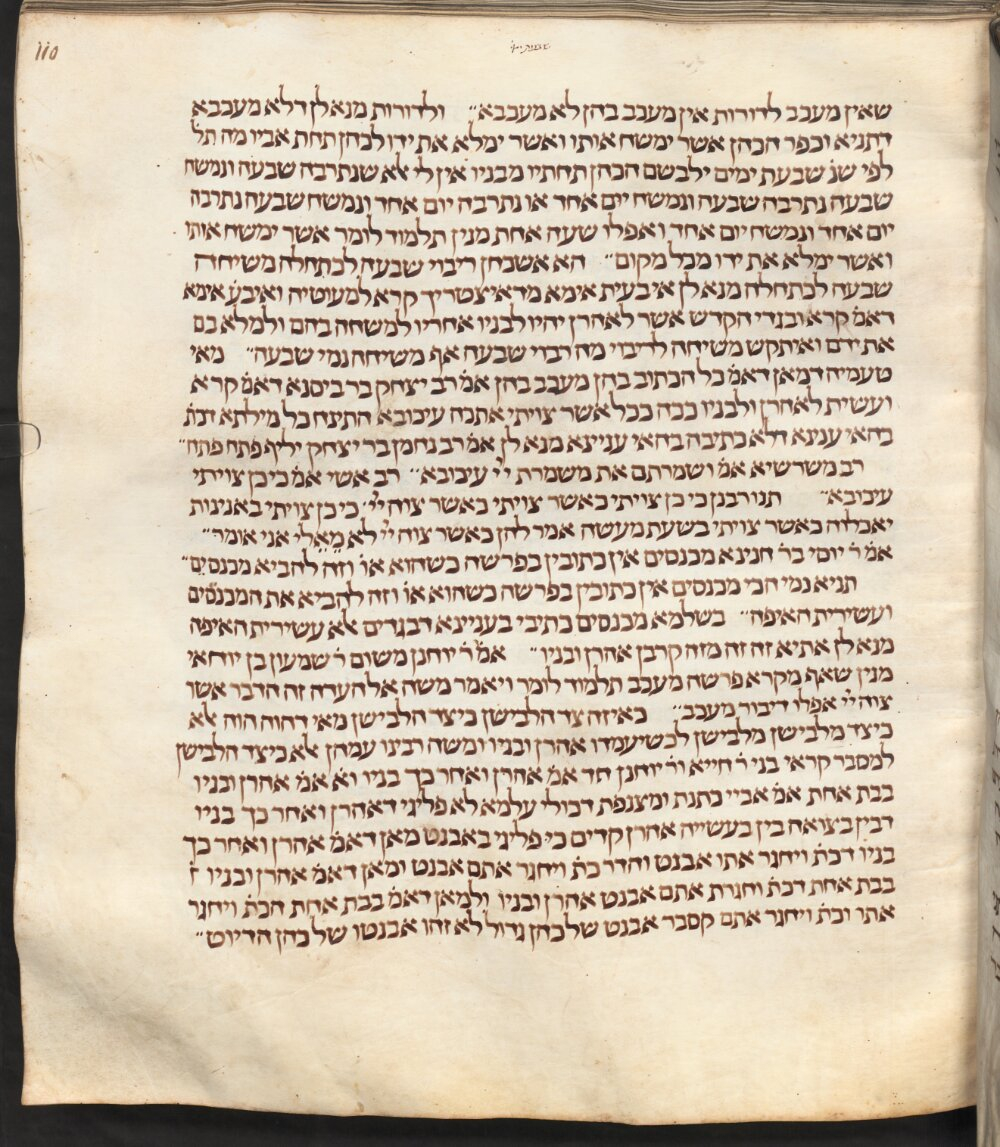 110
שאין מעכב לדורות אין מעכב בהן לא מעכבא״ ולדורות מנא לן דלא מעכבא
דתניא וכפר הכהן אשר ימשח אותו ואשר ימלא את ידו לכהן תחת אביו מה תל
לפי שנ׳ שבעת ימים ילבשם הכהן תחתיו מבניו אין לי אלא שנתרבה שבעה ונמשח
שבעה נתרבה שבעה ונמשח יום אחד או נתרבה יום אחד ונמשח שבעה נתרבה
יום אחד ונמשח יום אחד ואפלו שעה אחת מנין תלמוד לומר אשר ימשח אותו
ואשר ימלא את ידו מכל מקום״ הא אשכחן ריבוי שבעה לכתחלה משיחה
שבעה לכתחלה מנא לן אי בעית אימא מדאיצטריך קרא למעוטיה ואיבע׳ אימא
דאמ׳ קרא ובגדי הקדש אשר לאהרן יהיו לבניו אחריו למשחה בהם ולמלא בם
את ידם ואיתקש משיחה לריבוי מה רבוי שבעה אף משיחה נמי שבעה״ מאי
טעמיה דמאן דאמ׳ כל הכתוב בהן מעכב בהן אמ׳ רב יצחק בר ביסנא דאמ׳ קרא
ועשית לאהרן ולבניו ככה ככל אשר צויתי אתכה עיכובא התינח כל מילתא דכת׳
בהאי ענינא דלא כתיבה בהאי עניינא מנא לן אמ׳ רב נחמן בר יצחק יליף פתח פתח״
רב משרשיא אמ׳ ושמרתם את משמרת ייי עיכובא״ רב אשי אמ׳ כי כן צויתי
עיכובא״ תנו רבנן כי כן צויתי כאשר צויתי כאשר צוה ייי׳ כי כן צויתי באנינות
יאכלוה כאשר צויתי בשעת מעשה אמר להן כאשר צוה ייי לא מאלי אני אומר״
אמ׳ ר׳ יוסי בר׳ חנינא מכנסים אין כתובין בפרשה כשהוא או׳ וזה להביא מכנסים״
תניא נמי הכי מכנסים אין כתובין בפרשה כשהוא או׳ וזה להביא את המכנסים
ועשירית האיפה״ בשלמא מכנסים כתיבי בעניינא דבגדים אלא עשירית האיפה
מנא לן אתיא זה זה מזה קרבן אהרן ובניו״ אמ׳ ר׳ יוחנן משום ר׳ שמעון בן יוחאי
מנין שאף מקרא פרשה מעכב תלמוד לומר ויאמר משה אל העדה זה הדבר אשר
צוה ייי אפלו דיבור מעכב״ כאיזה צד הלבישן כיצד הלבישן מאי דהוה הוה אלא
כיצד מלבישן מלבישן לכשיעמדו אהרן ובניו ומשה רבינו עמהן אלא כיצד הלבישן
למסבר קראי בני ר׳ חייא ור׳ יוחנן חד אמ׳ אהרן ואחר כך בניו וא׳ אמ׳ אהרן ובניו
בבת אחת אמ׳ אביי כתנת ומצנפת דכולי עלמא לא פליגי דאהרן ואחר כך בניו
דבין בצואה בין בעשייה אהרן קדים כי פליגי באבנט מאן דאמ׳ אהרן ואחר כך
בניו דכת׳ ויחגר אתו אבנט והדר כת׳ ויחגר אתם אבנט ומאן דאמ׳ אהרן ובניו ז׳
בבת אחת דכת׳ וחגרת אתם אבנט אהרן ובניו ולמאן דאמ׳ בבת אחת הכת׳ ויחגר
אתו וכת׳ ויחגר אתם קסבר אבנט של כהן גדול לא זהו אבנטו של כהן הדיוט״